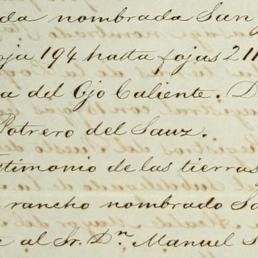 da nombrada San
oja 194 hasta fojas 211
a del Ojo Caliente. D
Potrero del Sauz.
timonio de las tierras
rancho nombrado Sa
al Sr. Dn Manuel S